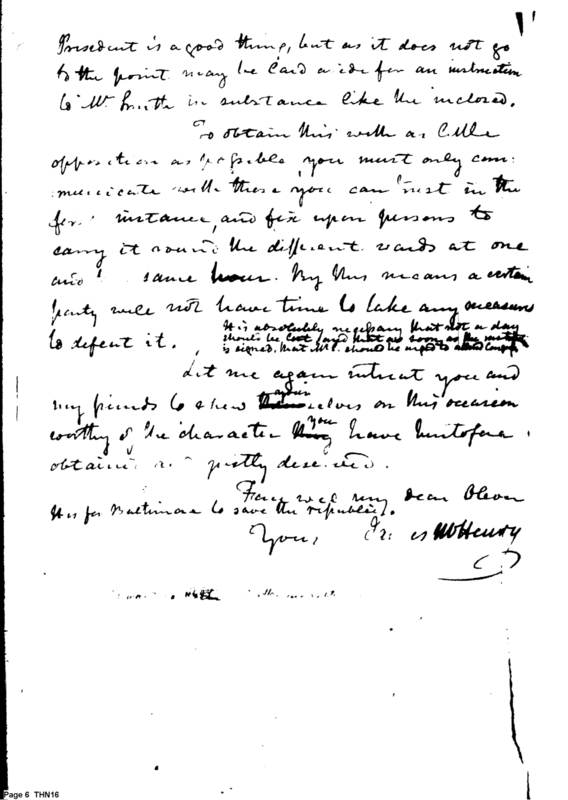 President is a good thing, but as it does not go
to the point may be laid aside for an instruction
to Mr. Smith in substance like the inclosed.
To obtain this with as little
opposition as possible you must only com:
municate with those you can trust in the
first instance, and fix upon persons to
carry it round the different wards at one
and same hour. By this means a certain
party will not have time to take any measures
to defeat it. It is absolutely necessary that not a day
should be lost, and that as soon as the
is signed, that Mr. S. should be urged to
Let me again intreat you and
my friends to shew themselves on this occasion
worthy of the character you have heretofore
obtained and justly deserved.
Farewell my dear Oliver
It is for Baltimore to save the republic.
Your, James McHenry
Page 6 THN16